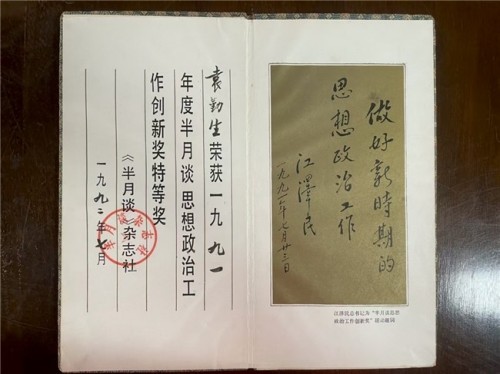 做好新時期的
思想政治工作
江澤民
一九九一年七月廿三日
江泽民总书记为“半月谈思想
政治工作创新奖”活动题词
袁勤生荣获一九九一
年度半月谈思想政治工
作创新奖特等奖
《半月谈》杂志社
一九九二年七月